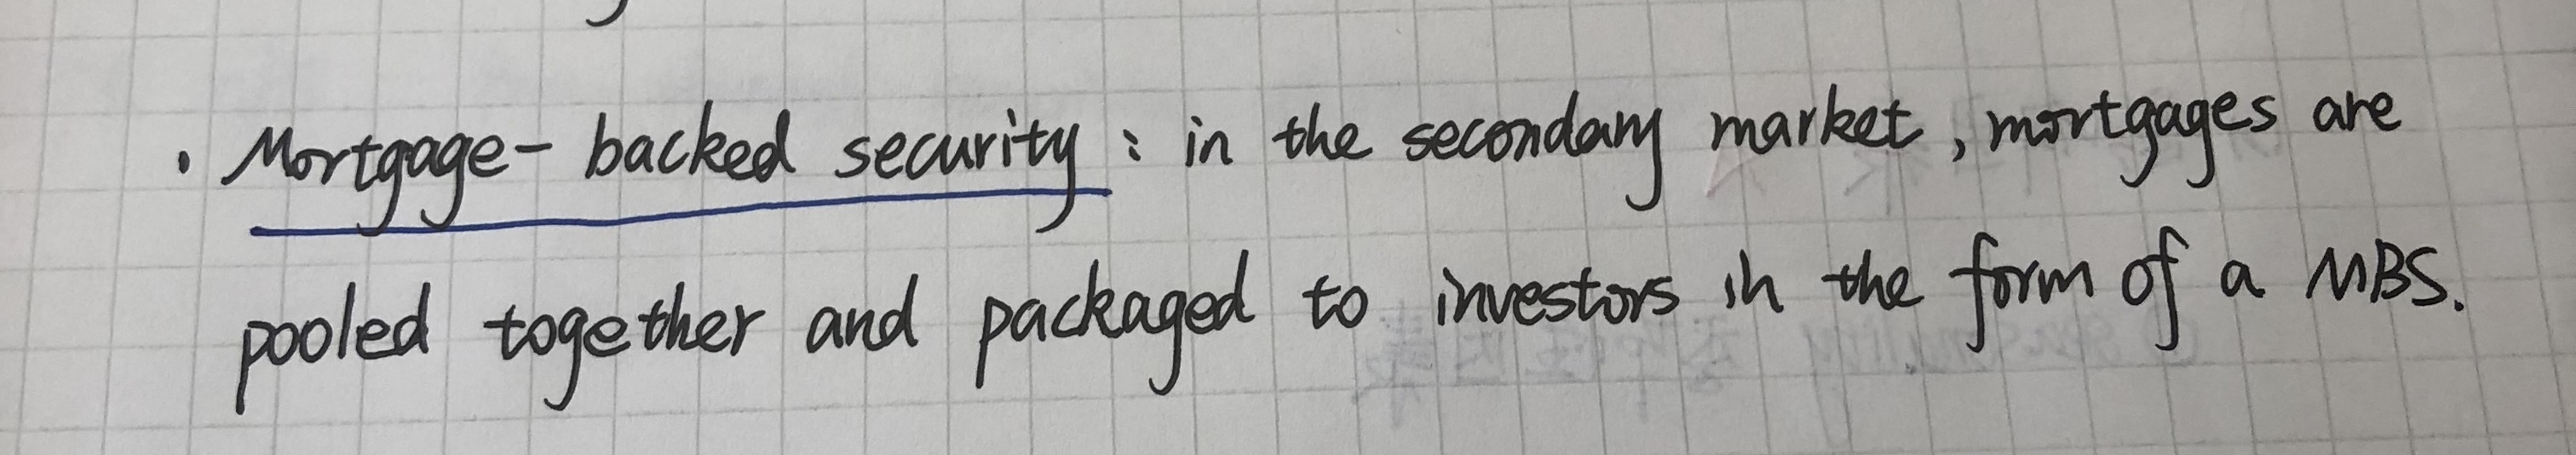 · Mortgage- backed security : in the secondary market , mortgages are
pooled together and packaged to investors in the form of a MBS.